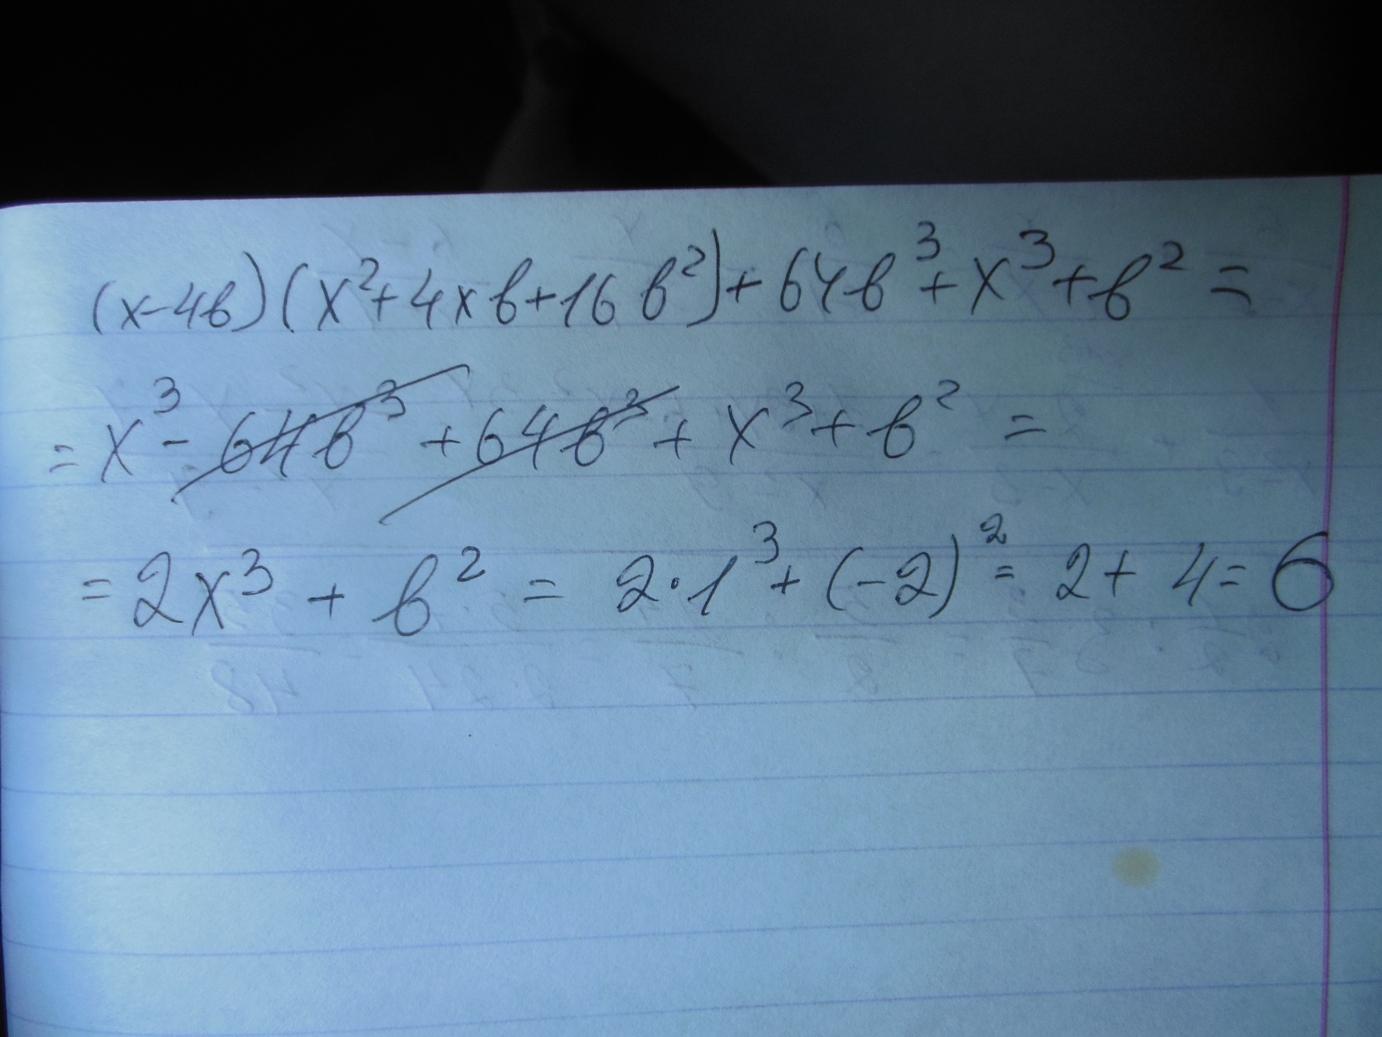 (x-4b)(x²+4xb+16b²)+64b³+x³+b²=
=x³-64b³+64b³+x³+b²=
=2x³+b²=2·1³+(-2)²=2+4=6